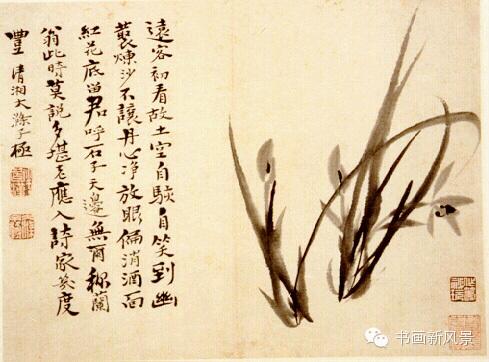 遠客初看故土空自駭自笑到幽
叢煉沙不讓丹心净放眼偏消酒面
紅花底留君呼石子天邊無爾称蘭
翁此時莫說多堪老應入詩家幾度
豐 清湘大滌子極
书画新风景